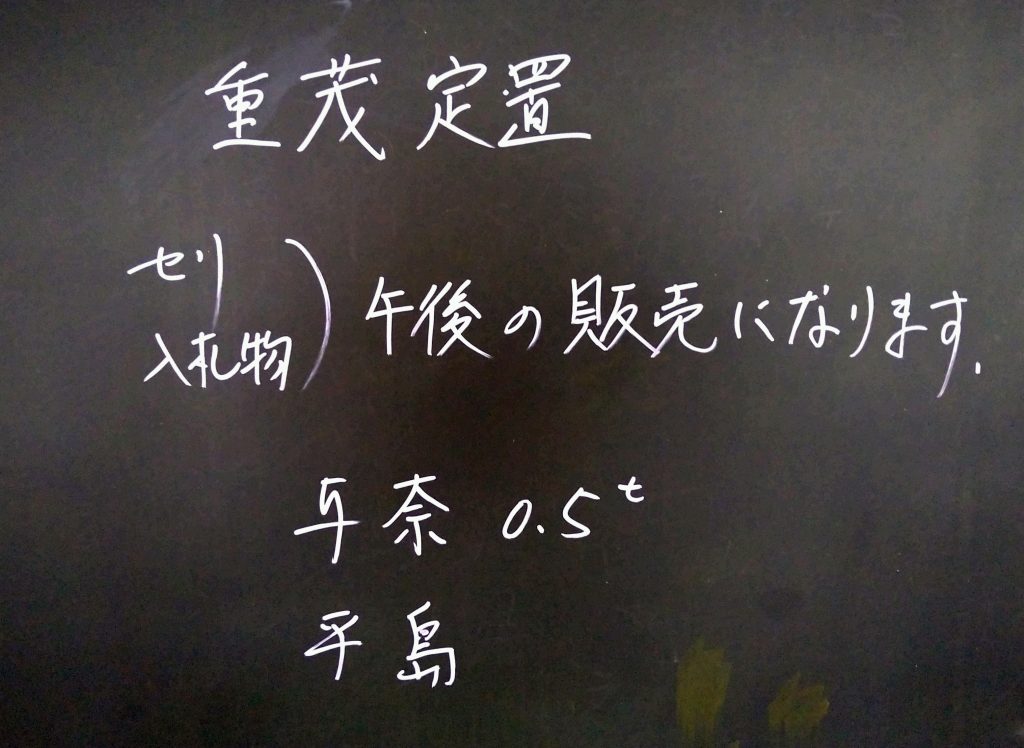 重茂定置
セリ
入札物
) 午後の販売になります.
与奈 0.5t
平島